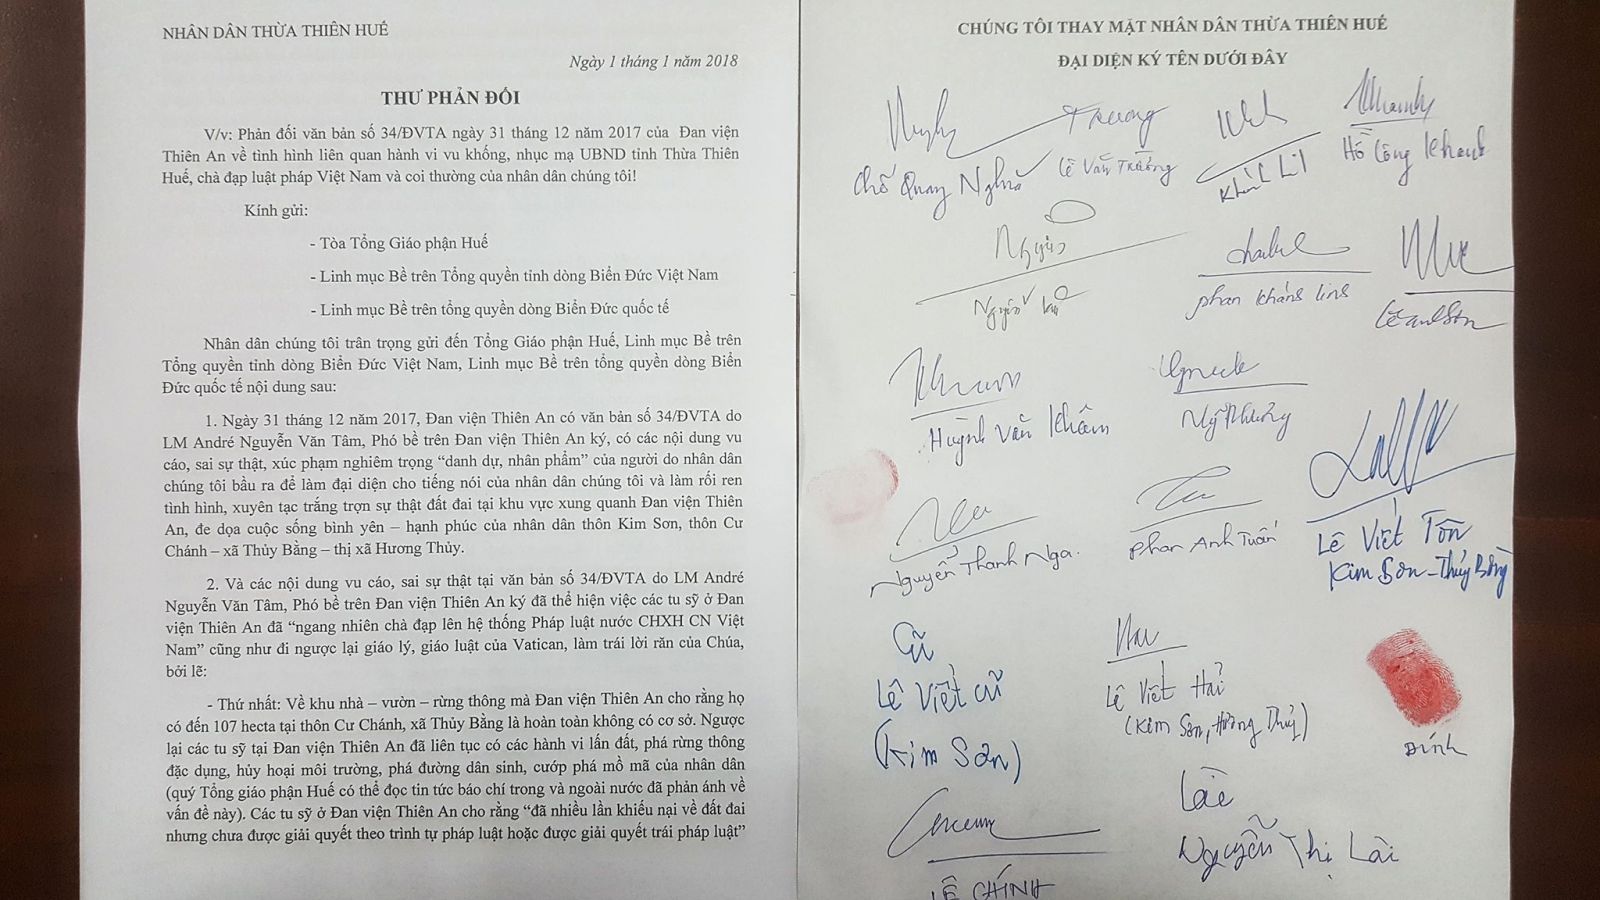 NHÂN DÂN THỪA THIÊN HUẾ
Ngày 1 tháng 1 năm 2018
THƯ PHẢN ĐỐI
V/v: Phản đối văn bản số 34/ĐVTA ngày 31 tháng 12 năm 2017 của Đan viện
Thiên An về tình hình liên quan hành vi vu khống, nhục mạ UBND tỉnh Thừa Thiên
Huế, chà đạp luật pháp Việt Nam và coi thường của nhân dân chúng tôi!
Kính gửi:
- Tòa Tổng Giáo phận Huế
- Linh mục Bề trên Tổng quyền tỉnh dòng Biển Đức Việt Nam
- Linh mục Bề trên tổng quyền dòng Biển Đức quốc tế
Nhân dân chúng tôi trân trọng gửi đến Tổng Giáo phận Huế, Linh mục Bề trên
Tổng quyền tỉnh dòng Biển Đức Việt Nam, Linh mục Bề trên tổng quyền dòng Biển
Đức quốc tế nội dung sau:
1. Ngày 31 tháng 12 năm 2017, Đan viện Thiên An có văn bản số 34/ĐVTA do
LM André Nguyễn Văn Tâm, Phó bề trên Đan viện Thiên An ký, có các nội dung vu
cáo, sai sự thật, xúc phạm nghiêm trọng “danh dự, nhân phẩm” của người do nhân dân
chúng tôi bầu ra để làm đại diện cho tiếng nói của nhân dân chúng tôi và làm rối ren
tình hình, xuyên tạc trắng trợn sự thật đất đai tại khu vực xung quanh Đan viện Thiên
An, đe dọa cuộc sống bình yên – hạnh phúc của nhân dân thôn Kim Sơn, thôn Cư
Chánh – xã Thủy Bằng – thị xã Hương Thủy.
2. Và các nội dung vu cáo, sai sự thật tại văn bản số 34/ĐVTA do LM André
Nguyễn Văn Tâm, Phó bề trên Đan viện Thiên An ký đã thể hiện việc các tu sỹ ở Đan
viện Thiên An đã “ngang nhiên chà đạp lên hệ thống Pháp luật nước CHXH CN Việt
Nam” cũng như đi ngược lại giáo lý, giáo luật của Vatican, làm trái lời răn của Chúa,
bởi lẽ:
- Thứ nhất: Về khu nhà – vườn – rừng thông mà Đan viện Thiên An cho rằng họ
có đến 107 hecta tại thôn Cư Chánh, xã Thủy Bằng là hoàn toàn không có cơ sở. Ngược
lại các tu sỹ tại Đan viện Thiên An đã liên tục có các hành vi lấn đất, phá rừng thông
đặc dụng, hủy hoại môi trường, phá đường dân sinh, cướp phá mồ mã của nhân dân
(quý Tổng giáo phận Huế có thể đọc tin tức báo chí trong và ngoài nước đã phản ánh về
vấn đề này). Các tu sỹ ở Đan viện Thiên An cho rằng “đã nhiều lần khiếu nại về đất đai
nhưng chưa được giải quyết theo trình tự pháp luật hoặc được giải quyết trái pháp luật”
CHÚNG TÔI THAY MẶT NHÂN DÂN THỪA THIÊN HUẾ
ĐẠI DIỆN KÝ TÊN DƯỚI ĐÂY
Trương
Lê Văn Trường
Hồ Công Khanh
phan khánh linh
Huỳnh Văn Khâm
Nguyễn Thanh Nga.
phan Anh Tuấn
Lê Viết Tôn
Kim Sơn - Thủy Bằng
Cũ
Lê Viết cũ
(Kim Sơn)
Lê Viết Hải
(Kim Sơn, Hương Thủy)
Đính
Lài
Nguyễn Thị Lài
LÊ CHÍNH